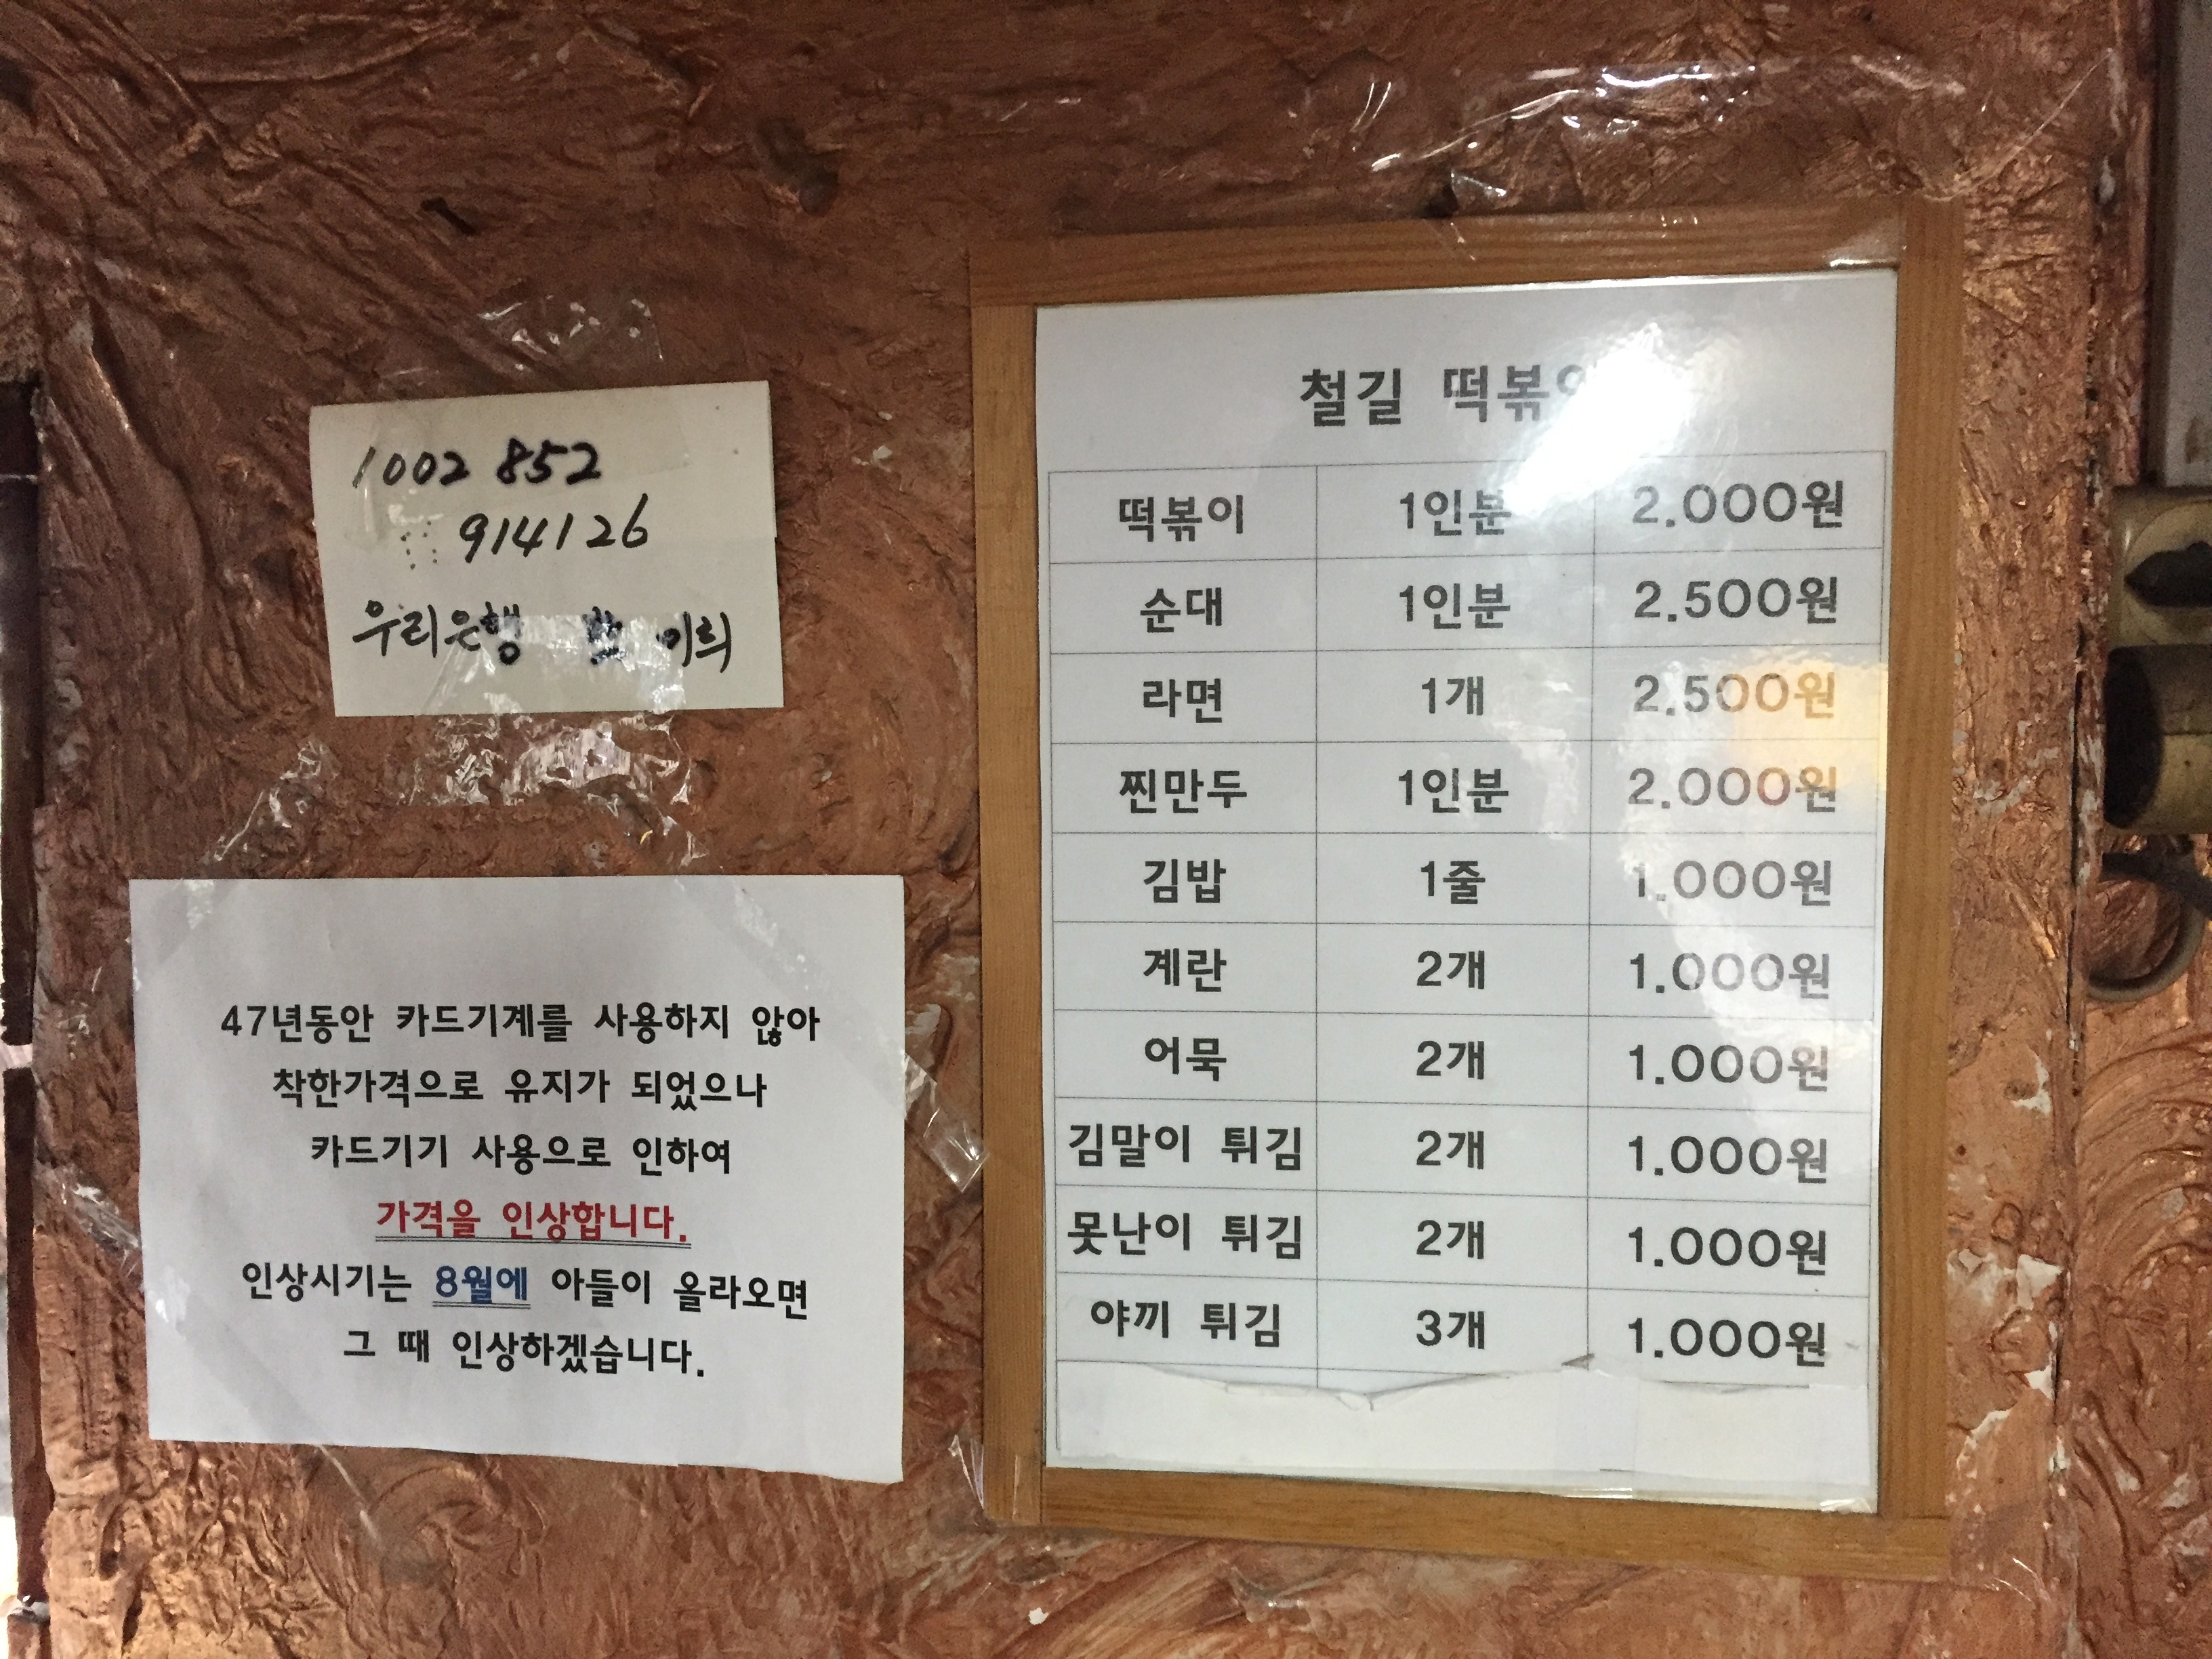 1002 852
914126
우리은행
47년동안 카드기계를 사용하지 않아
착한가격으로 유지가 되었으나
카드기기 사용으로 인하여
가격을 인상합니다.
인상시기는 8월에 아들이 올라오면
그 때 인상하겠습니다.
철길 떡볶이
떡볶이 1인분 2.000원
순대 1인분 2.500원
라면 1개 2.500원
찐만두 1인분 2.000원
김밥 1줄 1.000원
계란 2개 1.000원
어묵 2개 1.000원
김말이 튀김 2개 1.000원
못난이 튀김 2개 1.000원
야끼 튀김 3개 1.000원